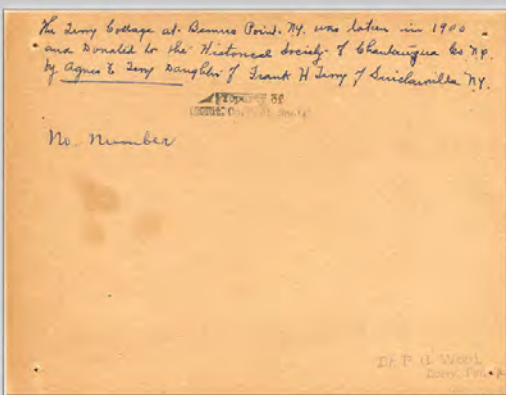 The Terry Cottage at Bemus Point. NY. was taken in 1900
and Donated to the Historical Society of Chautauqua Co NY.
by Agnes E Terry Daughter of Frank H Terry of Sinclairville NY.
Property of
No. Number